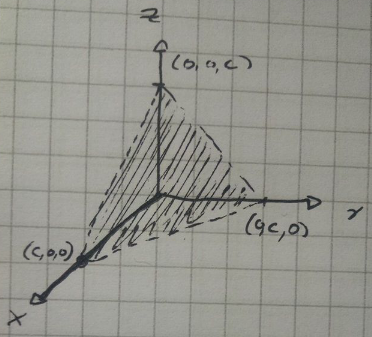 z
(0,0,c)
y
(0,c,0)
(c,0,0)
x